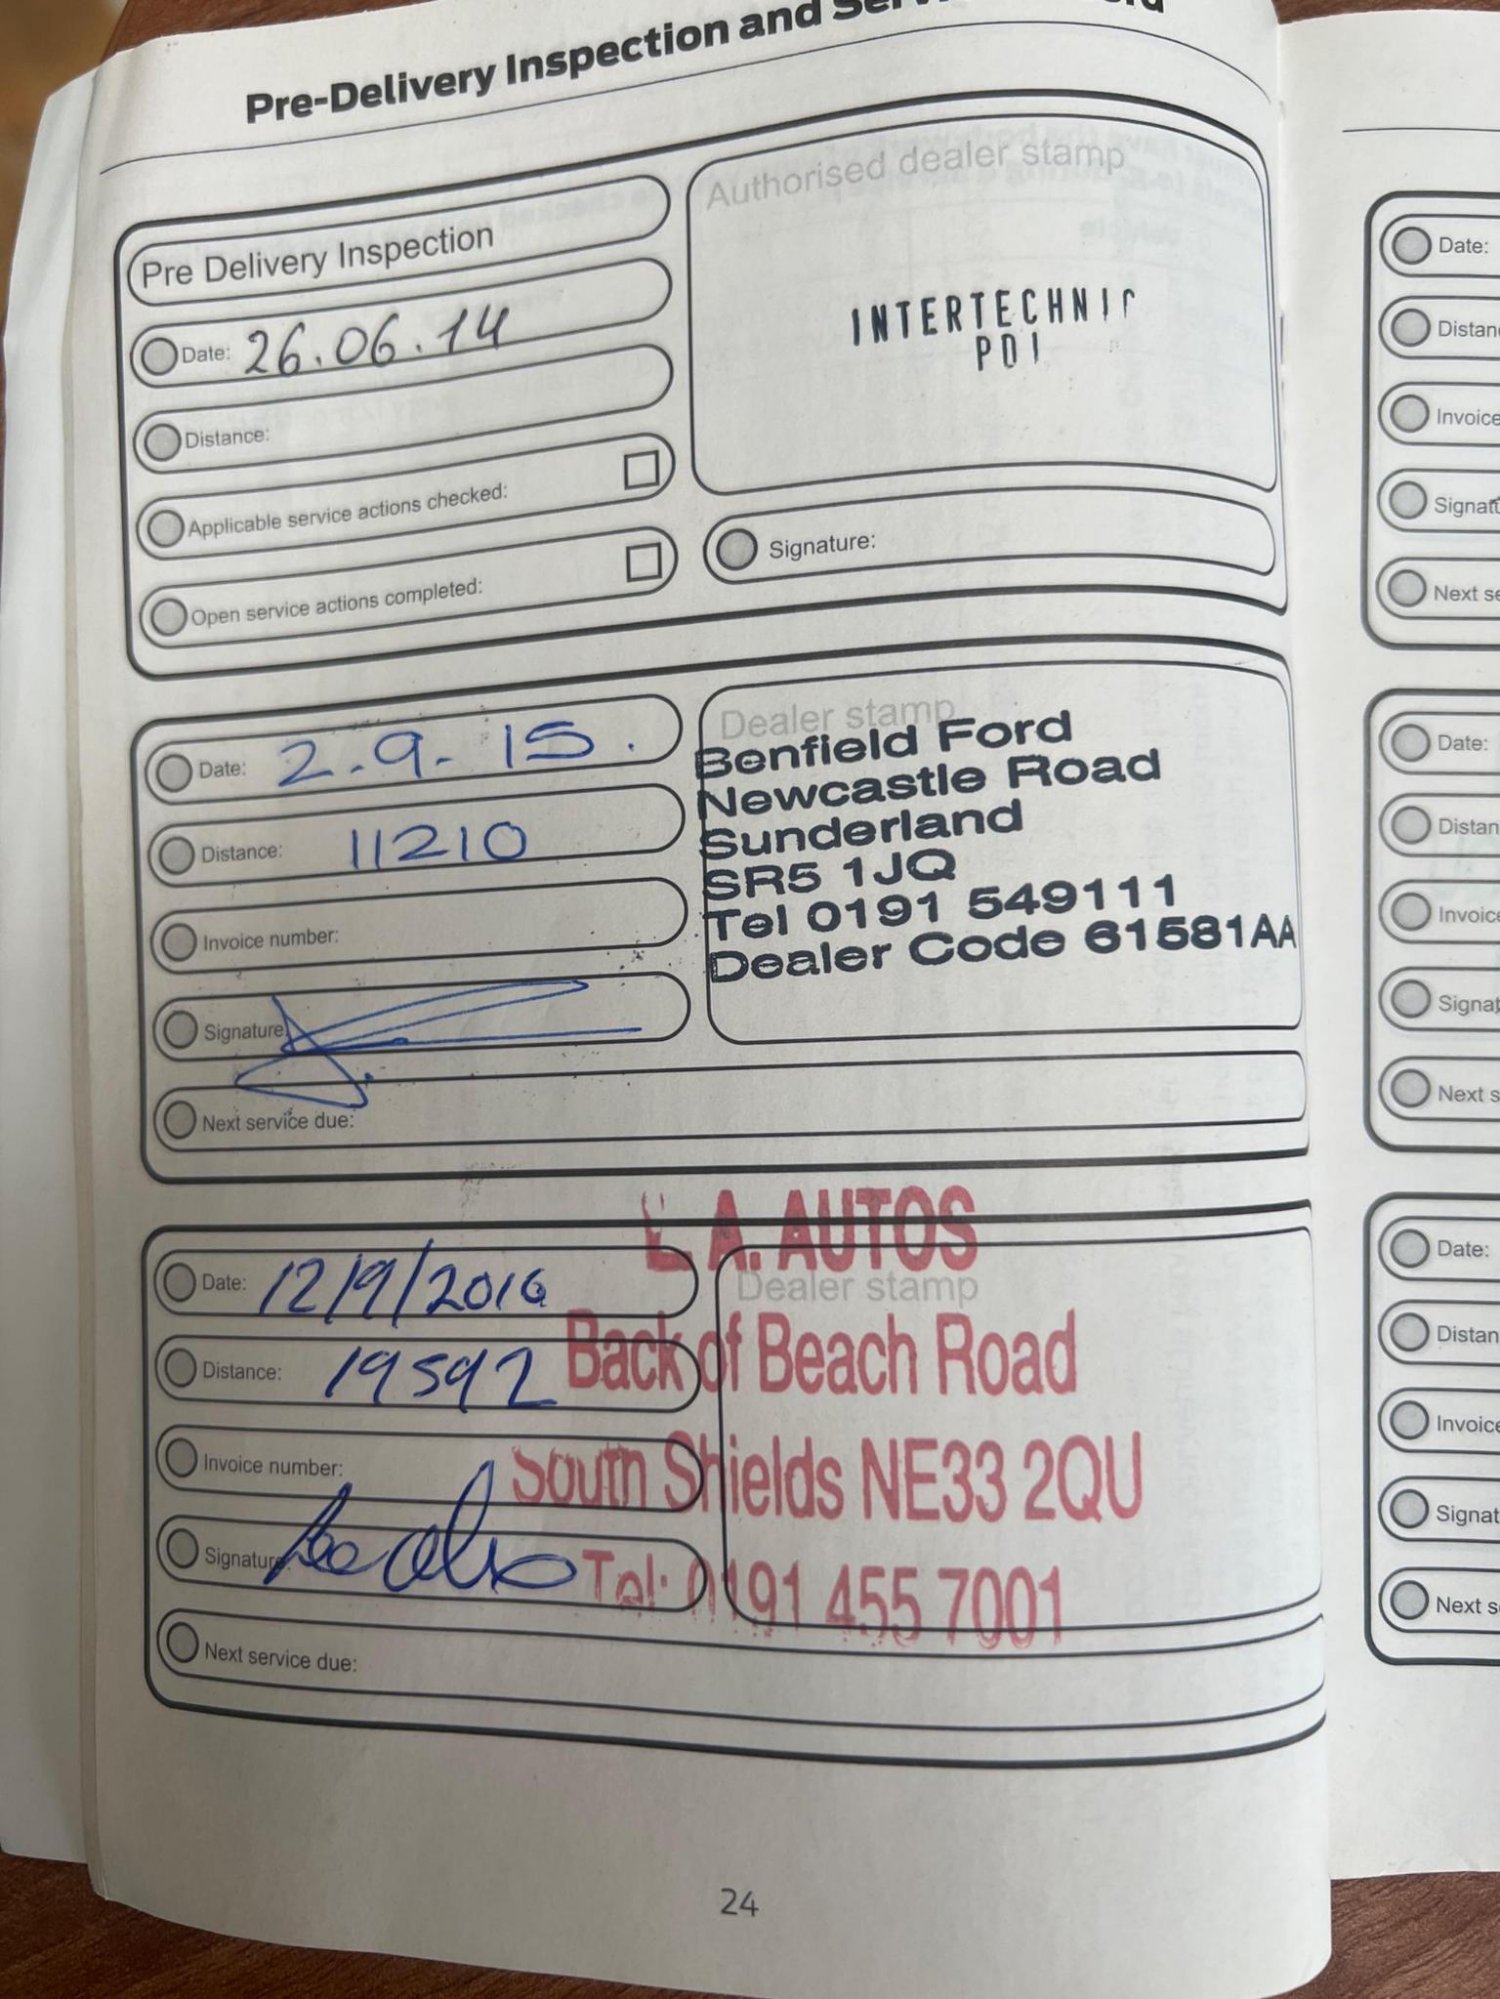 Pre-Delivery Inspection and
Pre Delivery Inspection
Date: 26.06.14
Distance:
Applicable service actions checked:
Open service actions completed:
Authorised dealer stamp
INTERTECHNIC
PDI
Signature:
Date: 2.9.15.
Distance: 11210
Invoice number:
Signature
Next service due:
Dealer stamp
Benfield Ford
Newcastle Road
Sunderland
SR5 1JQ
Tel 0191 549111
Dealer Code 61581AA
Date: 12/9/2016
Distance: 19592
Invoice number:
Signature
Next service due:
Dealer stamp
A. AUTOS
Back of Beach Road
South Shields NE33 2QU
Tel: 0191 455 7001
24
Date:
Distan
Invoice
Signat
Next se
Date:
Distan
Invoice
Signat
Next s
Date:
Distan
Invoice
Signat
Next s